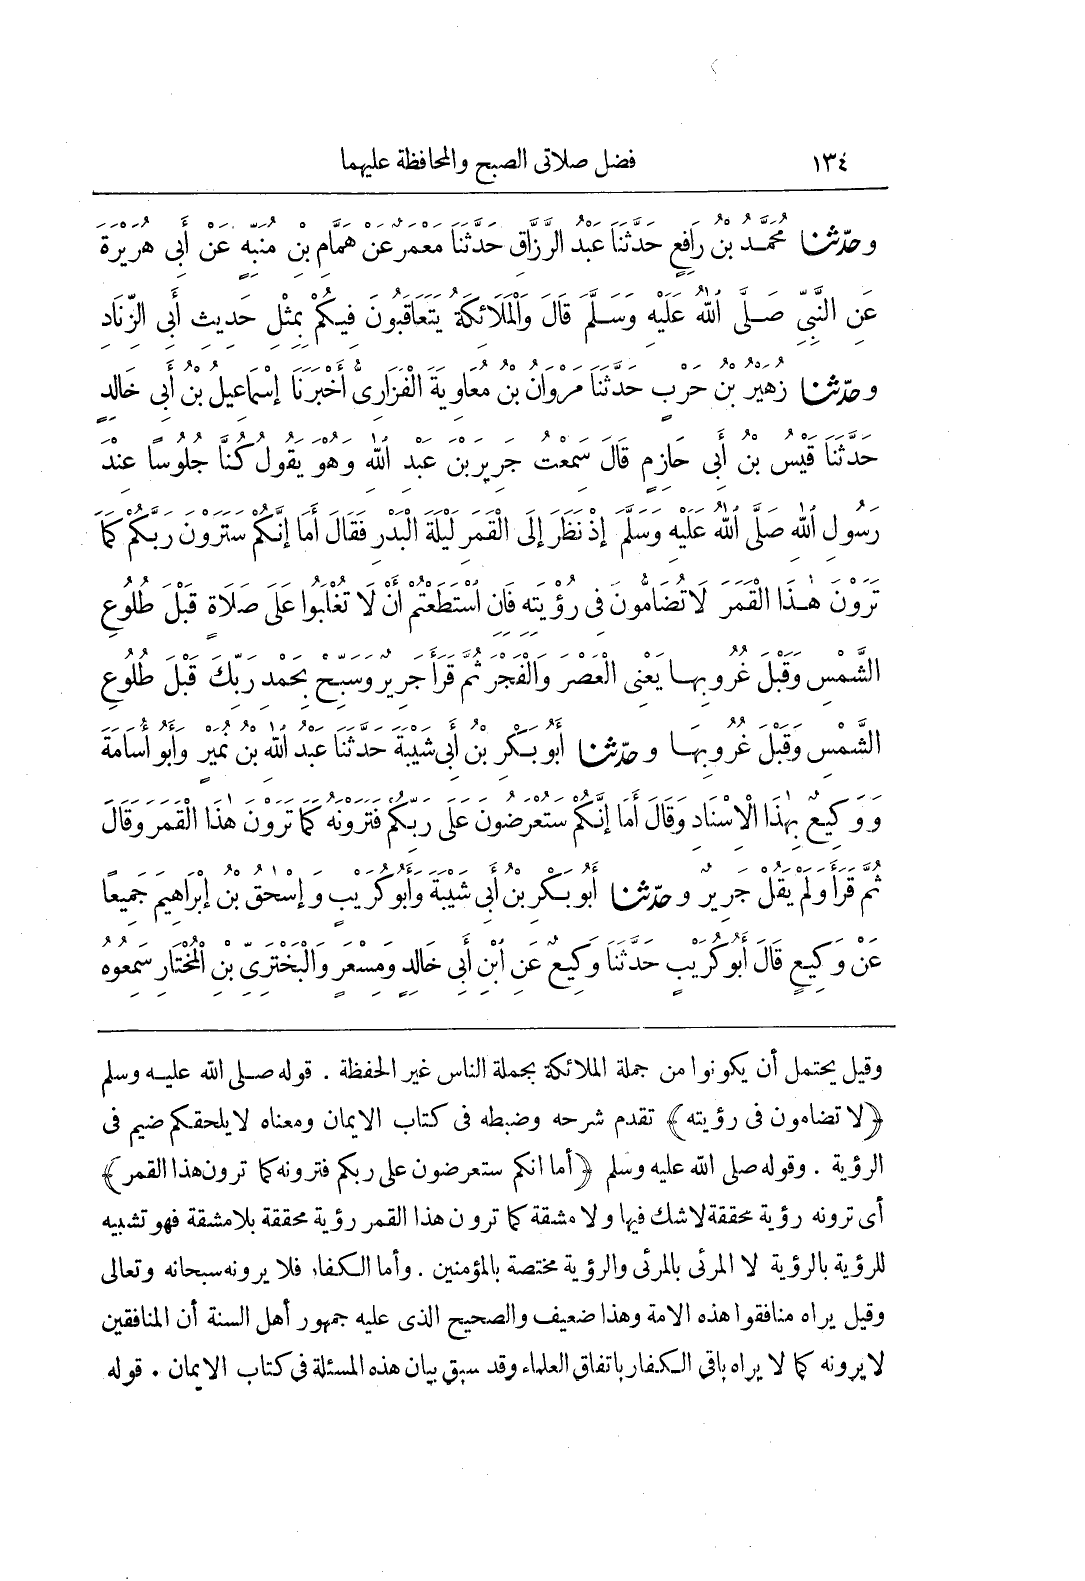 ١٣٤ فضل صلاتى الصبح والمحافظة عليهما
وحدثنا مُحَمَّدُ بْنُ رَافِعٍ حَدَّثَنَا عَبْدُ الرَّزَّاقِ حَدَّثَنَا مَعْمَرٌ عَنْ هَمَّامِ بْنِ مُنَبِّهٍ عَنْ أَبِى هُرَيْرَةَ
عَنِ النَّبِىِّ صَلَّى ٱللهُ عَلَيْهِ وَسَلَّمَ قَالَ وَٱلْمَلَائِكَةُ يَتَعَاقَبُونَ فِيكُمْ بِمِثْلِ حَدِيثِ أَبِى الزِّنَادِ
وحدثنا زُهَيْرُ بْنُ حَرْبٍ حَدَّثَنَا مَرْوَانُ بْنُ مُعَاوِيَةَ الْفَزَارِىُّ أَخْبَرَنَا إِسْمَاعِيلُ بْنُ أَبِى خَالِدٍ
حَدَّثَنَا قَيْسُ بْنُ أَبِى حَازِمٍ قَالَ سَمِعْتُ جَرِيرَ بْنَ عَبْدِ ٱللهِ وَهُوَ يَقُولُ كُنَّا جُلُوسًا عِنْدَ
رَسُولِ ٱللهِ صَلَّى ٱللهُ عَلَيْهِ وَسَلَّمَ إِذْ نَظَرَ إِلَى الْقَمَرِ لَيْلَةَ الْبَدْرِ فَقَالَ أَمَا إِنَّكُمْ سَتَرَوْنَ رَبَّكُمْ كَمَا
تَرَوْنَ هٰذَا الْقَمَرَ لَا تُضَامُّونَ فِى رُؤْيَتِهِ فَانِ ٱسْتَطَعْتُمْ أَنْ لَا تُغْلَبُوا عَلَى صَلَاةٍ قَبْلَ طُلُوعِ
الشَّمْسِ وَقَبْلَ غُرُوبِهَا يَعْنِى الْعَصْرَ وَالْفَجْرَ ثُمَّ قَرَأَ جَرِيرٌ وَسَبِّحْ بِحَمْدِ رَبِّكَ قَبْلَ طُلُوعِ
الشَّمْسِ وَقَبْلَ غُرُوبِهَا وحدثنا أَبُو بَكْرِ بْنُ أَبِى شَيْبَةَ حَدَّثَنَا عَبْدُ ٱللهِ بْنُ نُمَيْرٍ وَأَبُو أُسَامَةَ
وَوَكِيعٌ بِهٰذَا الْاِسْنَادِ وَقَالَ أَمَا إِنَّكُمْ سَتُعْرَضُونَ عَلَى رَبِّكُمْ فَتَرَوْنَهُ كَمَا تَرَوْنَ هٰذَا الْقَمَرَ وَقَالَ
ثُمَّ قَرَأَ وَلَمْ يَقُلْ جَرِيرٌ وحدثنا أَبُو بَكْرِ بْنُ أَبِى شَيْبَةَ وَأَبُو كُرَيْبٍ وَإِسْحٰقُ بْنُ إِبْرَاهِيمَ جَمِيعًا
عَنْ وَكِيعٍ قَالَ أَبُو كُرَيْبٍ حَدَّثَنَا وَكِيعٌ عَنِ ٱبْنِ أَبِى خَالِدٍ وَمِسْعَرٍ وَالْبَخْتَرِىِّ بْنِ الْمُخْتَارِ سَمِعُوهُ
وقيل يحتمل أن يكونوا من جملة الملائكة بجملة الناس غير الحفظة . قوله صلى الله عليه وسلم
﴿لا تضامون فى رؤيته﴾ تقدم شرحه وضبطه فى كتاب الايمان ومعناه لا يلحقكم ضيم فى
الرؤية . وقوله صلى الله عليه وسلم ﴿أما انكم ستعرضون على ربكم فترونه كما ترون هذا القمر﴾
أى ترونه رؤية محققة لا شك فيها ولا مشقة كما ترون هذا القمر رؤية محققة بلا مشقة فهو تشبيه
للرؤية بالرؤية لا المرئى بالمرئى والرؤية مختصة بالمؤمنين . وأما الكفار فلا يرونه سبحانه وتعالى
وقيل يراه منافقوا هذه الامة وهذا ضعيف والصحيح الذى عليه جمهور أهل السنة أن المنافقين
لا يرونه كما لا يراه باقى الكفار باتفاق العلماء وقد سبق بيان هذه المسئلة فى كتاب الايمان . قوله